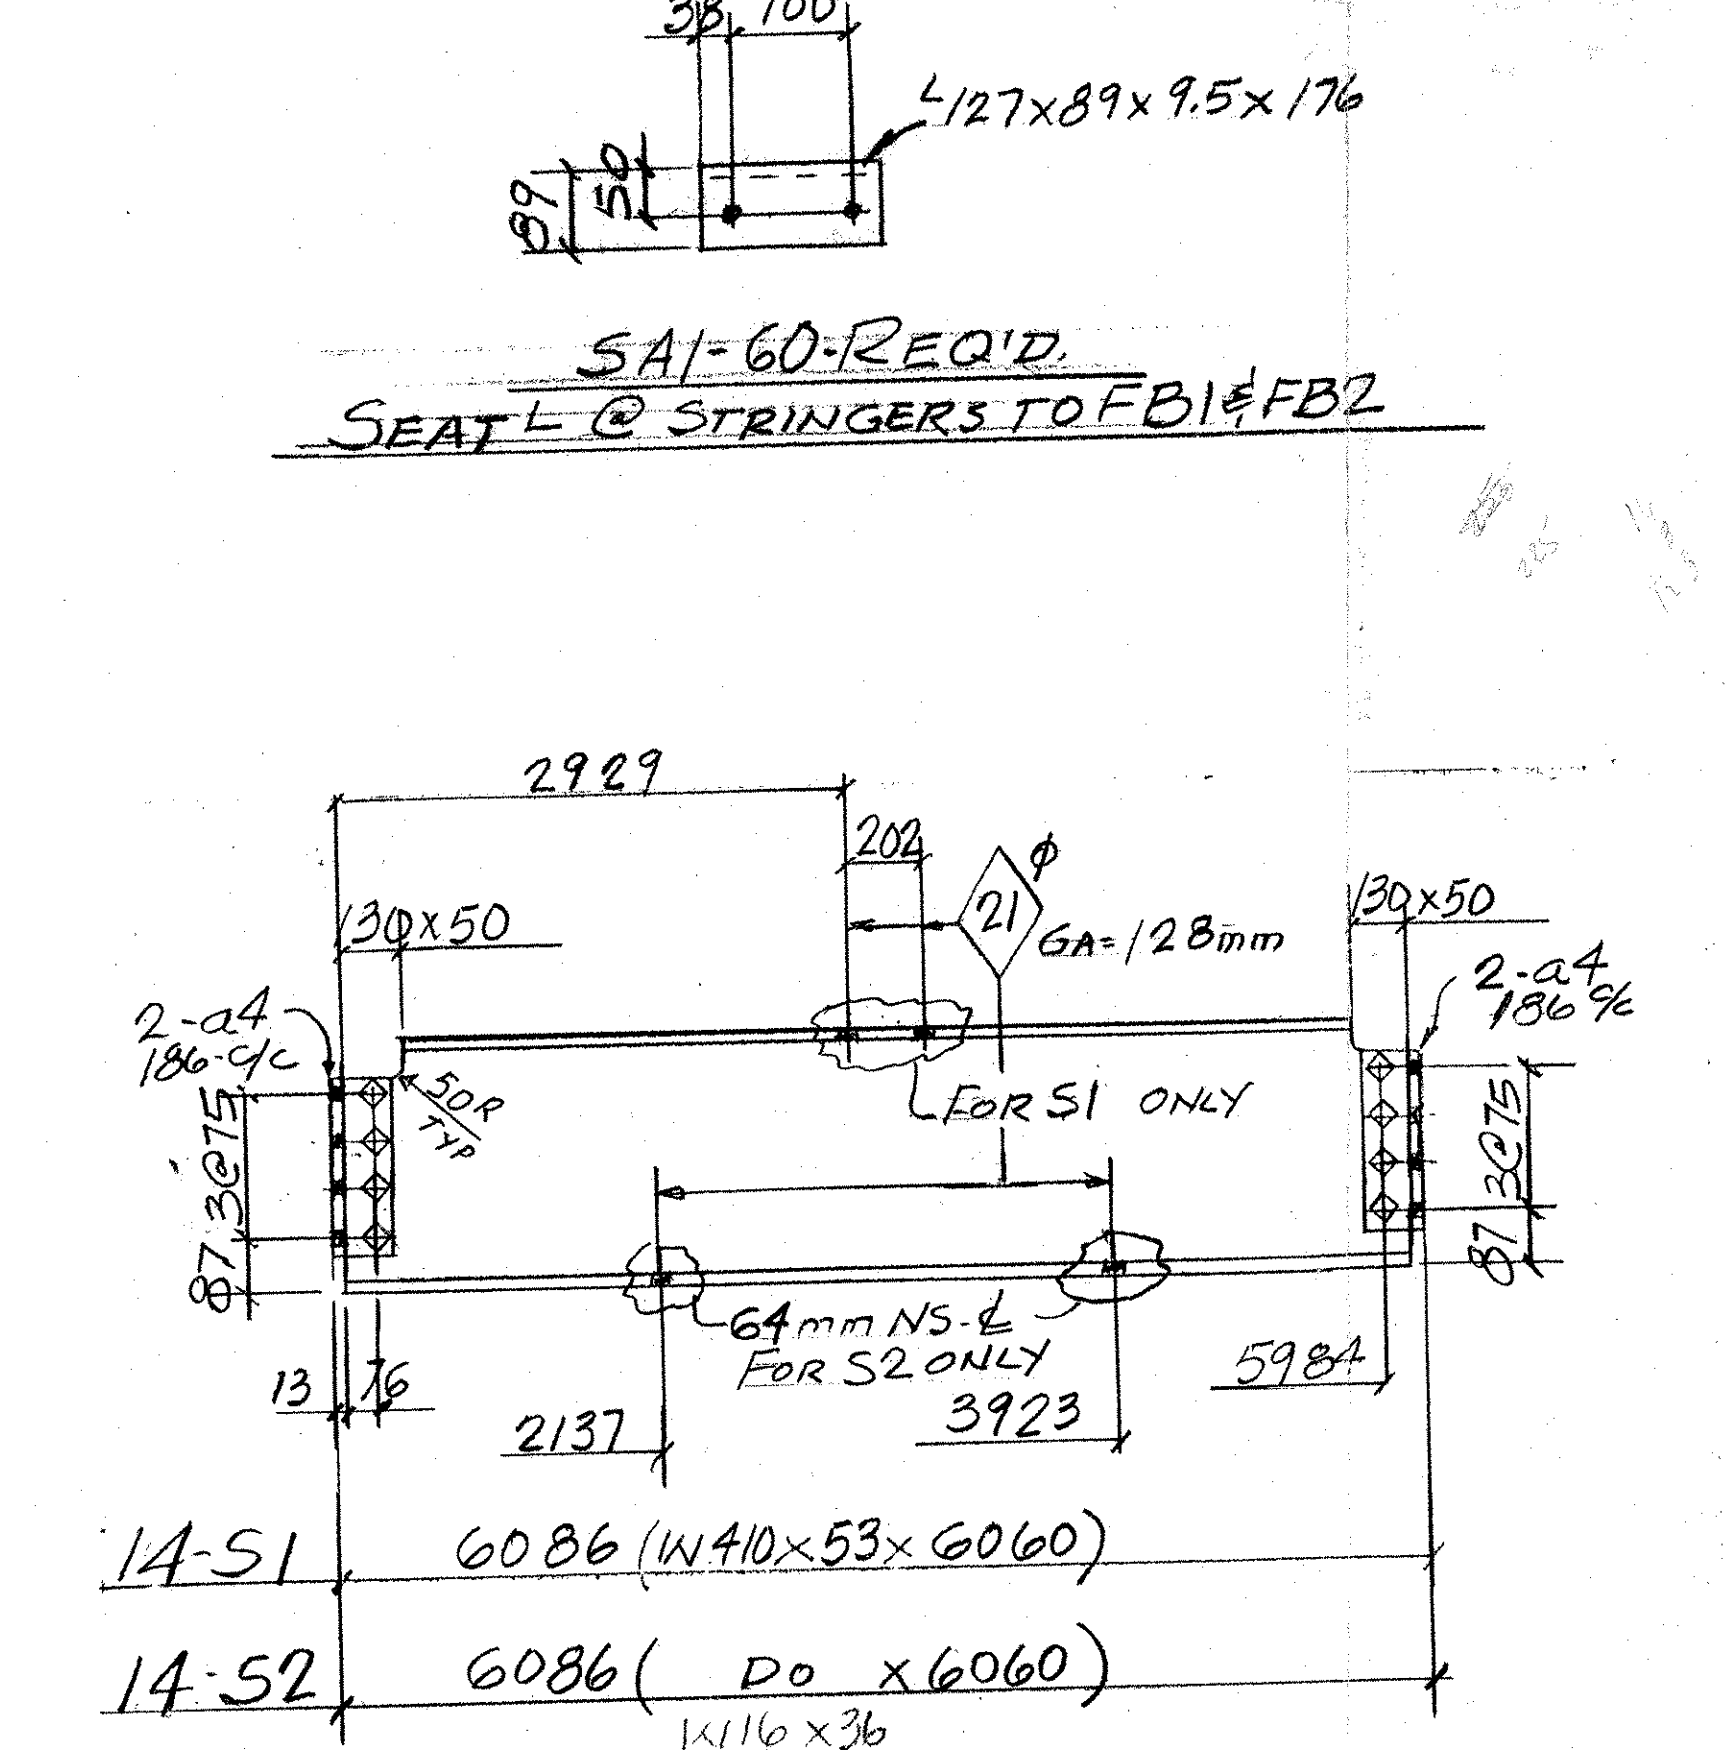 38 100
L127x89x9.5x176
89
50
SA1-60-REQ'D.
SEAT L @ STRINGERS TO FB1 & FB2
2929
202
21 φ
GA=128mm
130x50
130x50
2-a4
186-c/c
2-a4
186 c/c
50R
TYP
FOR S1 ONLY
87 3@75
87 3@75
64mm NS-℄
FOR S2 ONLY
13 76
2137
3923
5984
14-S1 6086 (W410x53x6060)
14-S2 6086 ( DO x6060)
W16x36